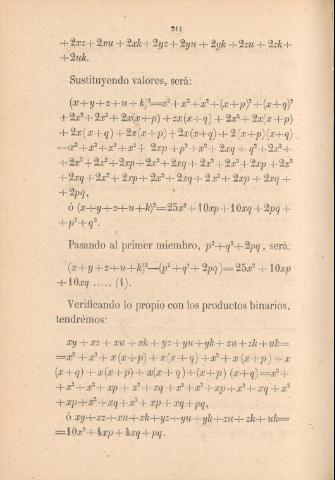 211
+2xz+2xu+2xk+2yz+2yu+2yk+2zu+2zk+
+2uk.
Sustituyendo valores, será:
(x+y+z+u+k)²=x²+x²+x²+(x+p)²+(x+q)²
+2x²+2x²+2x(x+p)+2x(x+q)+2x²+2x(x+p)
+2x(x+q)+2x(x+p)+2x(x+q)+2(x+p)(x+q)
=x²+x²+x²+x²+2xp+p²+x²+2xq+q²+2x²+
+2x²+2x²+2xp+2x²+2xq+2x²+2x²+2xp+2x²
+2xq+2x²+2xp+2x²+2xq+2x²+2xp+2xq+
+2pq,
ó (x+y+z+u+k)²=25x²+10xp+10xq+2pq+
+p²+q².
Pasando al primer miembro, p²+q²+2pq, será:
(x+y+z+u+k)²—(p²+q²+2pq)=25x²+10xp
+10xq ..... (1).
Verificando lo propio con los productos binarios,
tendrémos:
xy+xz+xu+xk+yz+yu+yk+zu+zk+uk=
=x²+x²+x(x+p)+x(x+q)+x²+x(x+p)+x
(x+q)+x(x+p)+x(x+q)+(x+p)(x+q)=x²+
+x²+x²+xp+x²+xq+x²+x²+xp+x²+xq+x²
+xp+x²+xq+x²+xp+xq+pq,
ó xy+xz+xu+xk+yz+yu+yk+zu+zk+uk=
=10x²+4xp+4xq+pq.